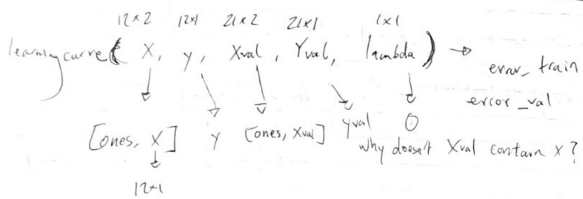 12×2 12×1 21×2 21×1 1×1
learningcurve( X, y, Xval, Yval, lambda) → error_train
error_val
[ones, X] y [ones, Xval] yval 0
why doesn't Xval contain x?
12×1